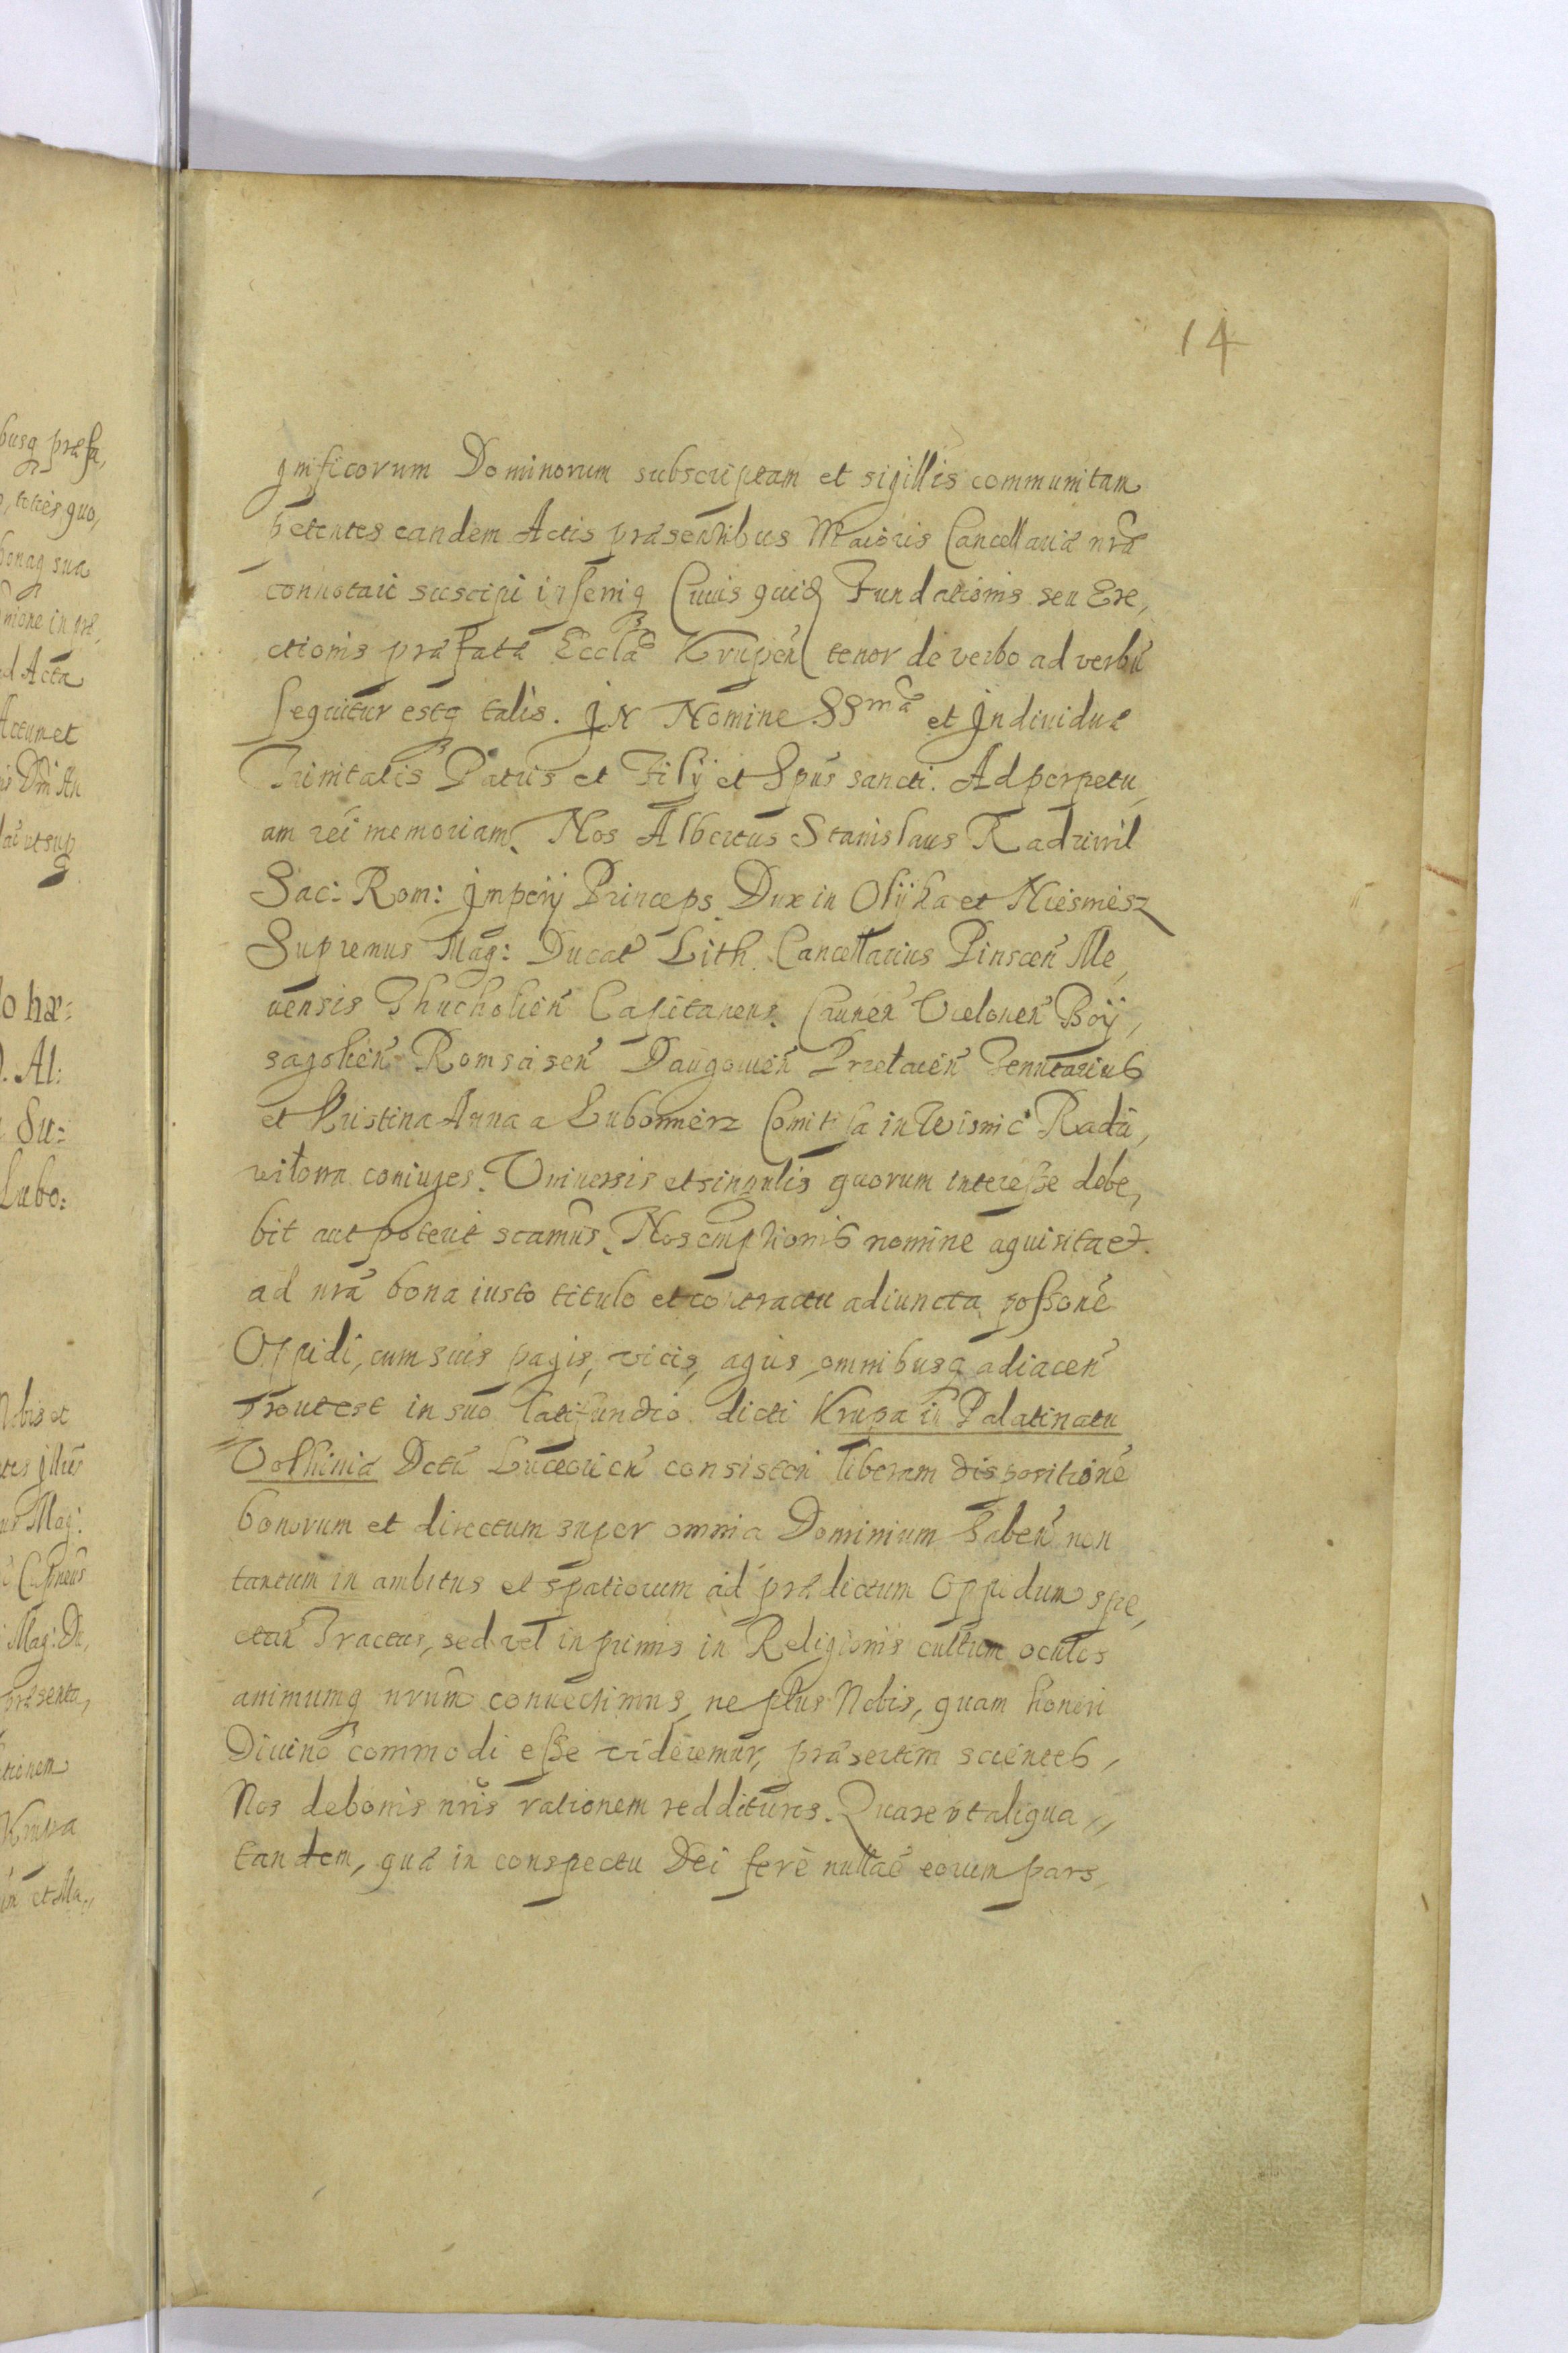 14
gnificorum Dominorum subscriptam et sigillis communitam
petentes eandem Actis præsentibus Maioris Cancellariæ nræ
connotari suscipi inserriq Cuius quid Fundationis seu Ere,
ctionis præfatæ Ecclæ Krupen tenor de verbo ad verbū
sequitur estq talis. IN Nomine SSmæ et Individuæ
Trinitatis Patris et Filij et Spūs sancti. Ad perpetu,
am rei memoriam. Nos Albertus Stanislaus Radziwil
Sac: Rom: Imperij Princeps Dux in Olijka et Niesmiesz
Supremus Mag: Ducat Lith. Cancellarius Pinscen Me,
uensis Thucholien Capitaneus. Caunen Vielonen Boij,
sagolien Romsisen Daugouien Tenutarius
et Kristina Anna a Lubomierz Comitissa in Wisnic Radzi,
wilowa coniuges. Vniuersis et singulis quorum interesse debe,
bit aut poterit scamus. Nos emptionis nomine aquisita et
ad nrā bona iusto titulo et contractu adiuncta possone
Oppidi, cum suis pagis, vicis, agris, omnibusq adiacen
prout est in suo latifundio dicti Krupa in Palatinatu
Volhiniæ Dctū Luceorien consisten liberam dispositione
bonorum et directum super omnia Dominium haben non
tantum in ambitus et spatiorum ad prædictum Oppidum spe,
ctan Tractus, sed vel inprimis in Religionis cultum oculos
animumq nrum conuertimus, ne plus Nobis, quam honori
Diuino commodi esse videremur, præsertim scientes,
Nos de bonis nris rationem reddituros. Quare vt aliqua,,
tandem, quæ in conspectu Dei ferè nulla è eorum pars,
busq præfa,
toties quo,
bonaq sua
nione in
ad Acta
Actum et
Lubo:
Mag:
Mag: Du,
præsenta,
Krupa
et Ma,,